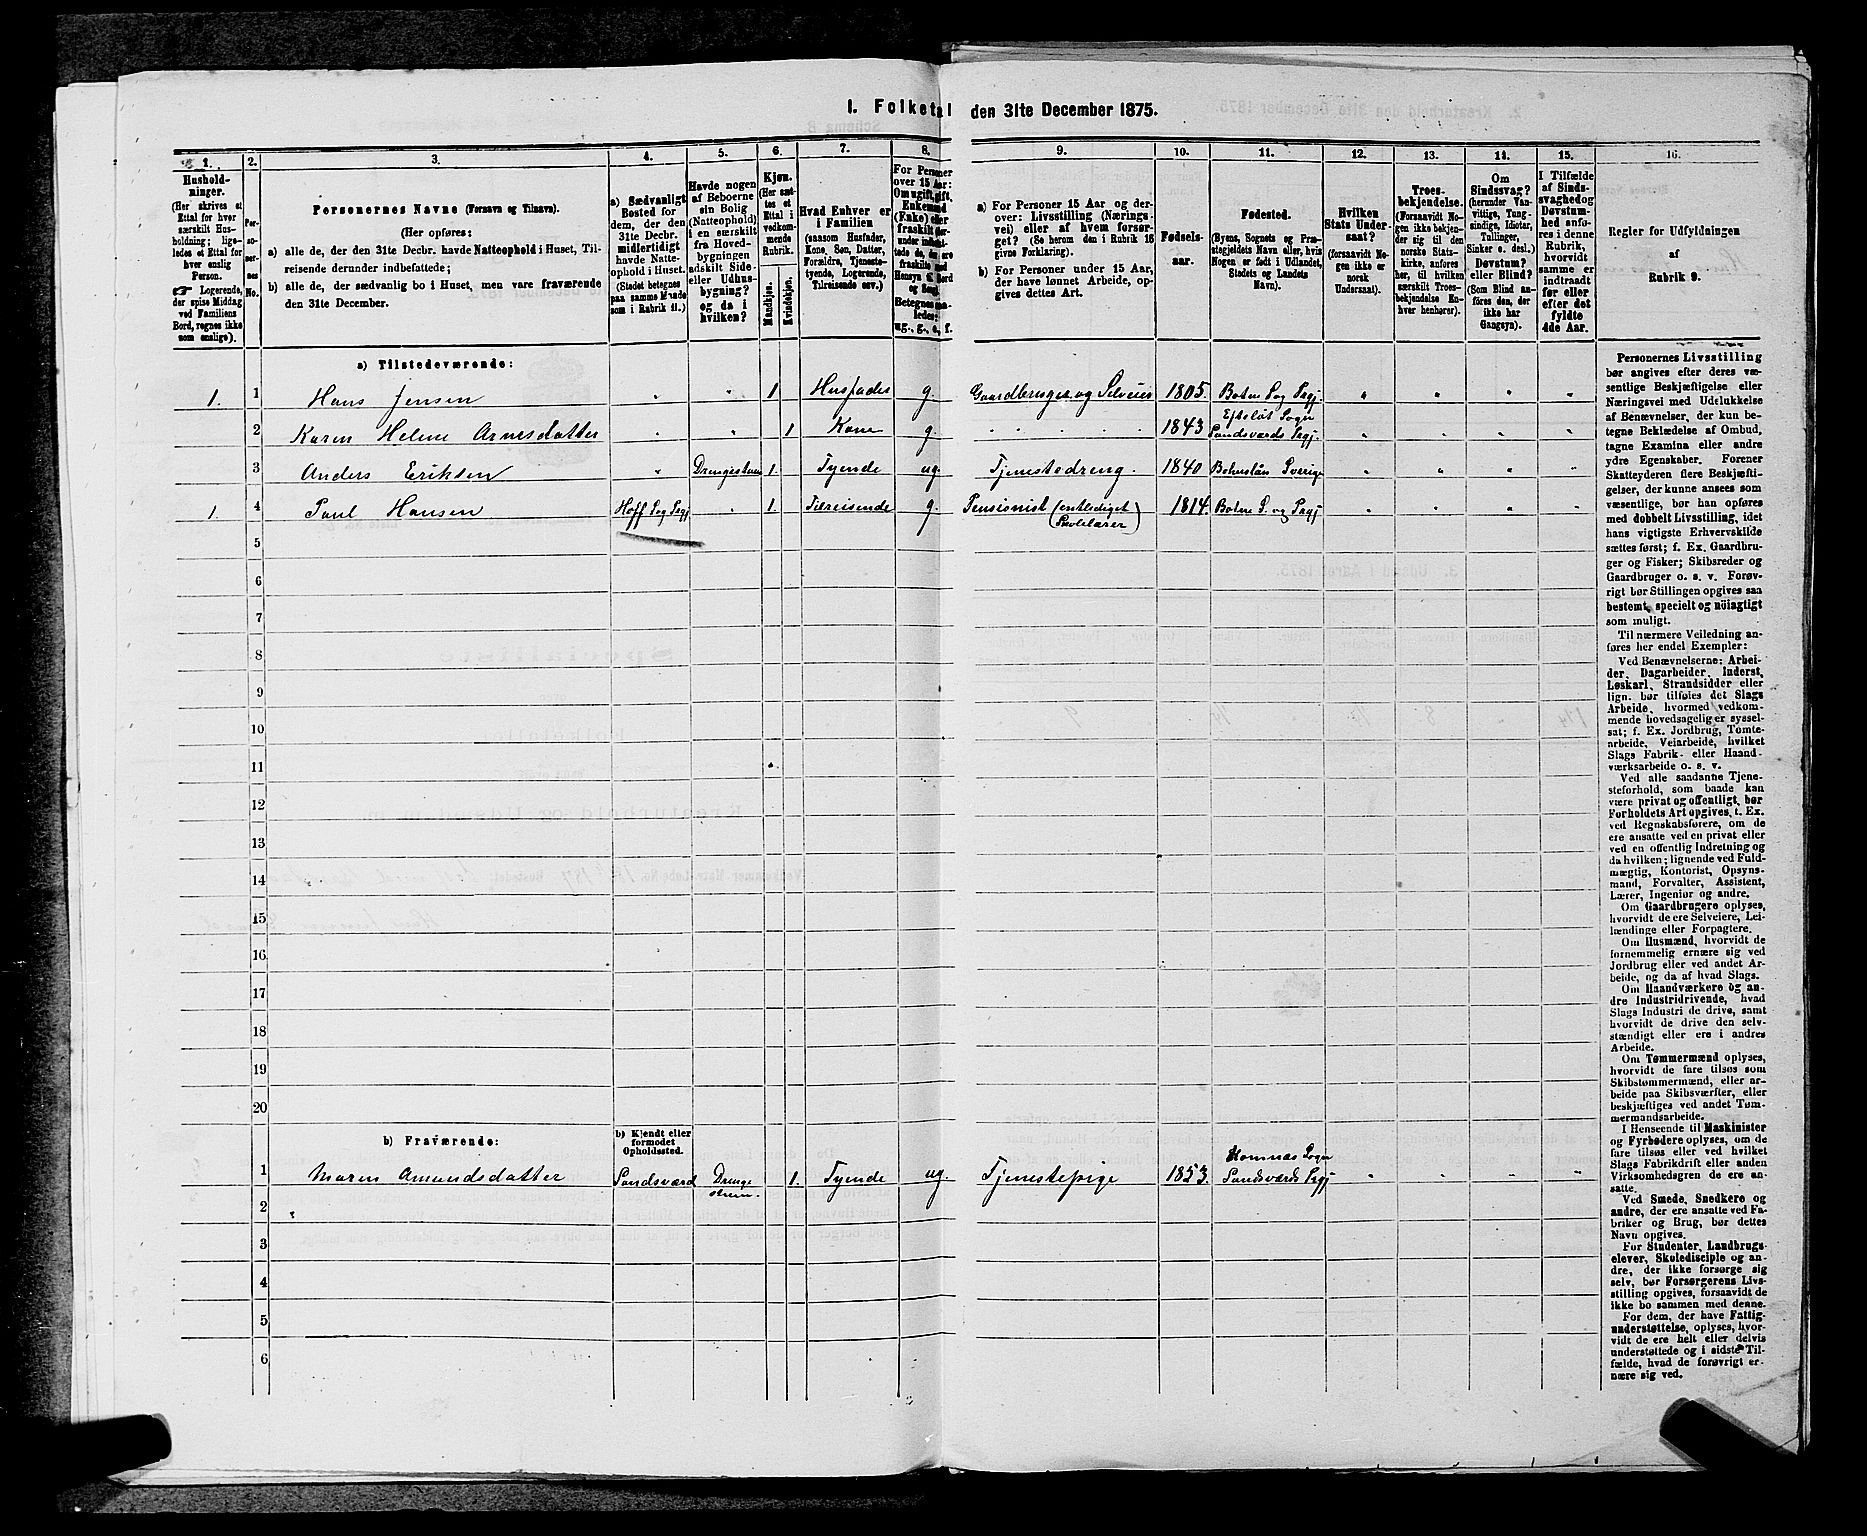 1. Folketal den 31te December 1875.
1. 2. 3. 4. 5. 6. 7. 8. 9. 10. 11. 12. 13. 14. 15. 16.
Hushold-
ninger.
(Her skrives et
Ettal for hver
særskilt Hus-
holdning; lige-
ledes et Ettal for
hver enslig
Person.
☛ Logerende,
der spise Middag
ved Familiens
Bord, regnes ikke
som enslige).
Per-
so-
ner-
nes
No.
Personernes Navne (Fornavn og Tilnavn).
(Her opføres:
a) alle de, der den 31te Decbr. havde Natteophold i Huset, Til-
reisende derunder indbefattede;
b) alle de, der sædvanlig bo i Huset, men vare fraværende
den 31te December.
a) Sædvanligt
Bosted for
dem, der den
31te Decbr.
midlertidigt
havde Natte-
ophold i Huset.
(Stedet betegnes
paa samme Maade
som i Rubrik 11.)
Havde nogen
af Beboerne
sin Bolig
(Natteophold)
i en særskilt
fra Hoved-
bygningen
adskilt Side-
eller Udhus-
bygning?
og da i
hvilken?
Kjøn.
(Her sæt-
tes et
Ettal i
vedkom-
mende
Rubrik.
Mandkjøn.
Kvindekjøn.
Hvad Enhver er
i Familien
(saasom Husfader,
Kone, Søn, Datter,
Forældre, Tjeneste-
tyende, Logerende,
Tilreisende osv.)
For Personer
over 15 Aar:
Om ugift, gift,
Enkemand
(Enke) eller
fraskilt
Betegnes saa-
ledes:
ug., g., e., f.
a) For Personer 15 Aar og der-
over: Livsstilling (Nærings-
vei) eller af hvem forsør-
get? (Se herom den i Rubrik 16
givne Forklaring).
b) For Personer under 15 Aar,
der have lønnet Arbeide, op-
gives dettes Art.
Fødsels-
aar.
Fødested.
(Byens, Sognets og Præ-
stegjeldets Navn eller, hvis
Nogen er født i Udlandet,
Stedets og Landets
Navn).
Hvilken
Stats Under-
saat?
(forsaavidt No-
gen ikke er
norsk
Undersaat).
Troes-
bekjendelse.
(Forsaavidt No-
gen ikke bekjen-
der sig til den
norske Stats-
kirke, anføres
her, til hvilken
særskilt Troes-
bekjendelse En-
hver henhører).
Om
Sindssvag?
(herunder Van-
vittige, Tung-
sindige, Idioter,
Tullinger,
Sinker o. desl.)
Døvstum?
eller Blind?
(Som Blind an-
føres den, der
ikke har
Gangsyn).
I Tilfælde
af Sinds-
svaghed og
Døvstum-
hed anfø-
res i denne
Rubrik,
hvorvidt
samme er
indtraadt
før eller
efter det
fyldte
4de Aar.
Regler for Udfyldningen
af
Rubrik 9.
a) Tilstedeværende:
1. 1 Hans Jensen " " 1 Husfader g. Gaardbruger og Selveier 1805. Botne S. og Prgj. " " " "
2 Karen Helene Arnesdatter " " 1 Kone g. " " " " 1843 Efteløt Sogn Sandsværds Prgj. " " " "
3 Anders Eriksen " Drengestuen 1. Tyende ug. Tjenestedreng. 1840 Bohuslän Sverige " " " "
1. 4 Paul Hansen Hoff S og Prgj " 1. Tilreisende g. Pensionist (entlediget Skolelærer) 1814. Botne S. og Prgj " " " "
5
6
7
8
9
10
11
12
13
14
15
16
17
18
19
20
b) Fraværende:
b) Kjendt eller
formodet
Opholdssted.
1 Maren Amundsdatter Sandsværd Drengestuen. 1. Tyende ug. Tjenestepige 1853. Komnæs Sogn Sandsværds Prgj " " " "
2
3
4
5
6
Personernes Livsstilling
bør angives efter deres væ-
sentlige Beskjæftigelse eller
Næringsvei med Udelukkelse
af Benævnelser, der kun be-
tegne Beklædelse af Ombud,
tagne Examina eller andre
ydre Egenskaber. Forener
Skatteyderen flere Beskjæfti-
gelser, der kunne ansees som
væsentlige, bør han opføres
med dobbelt Livsstilling, idet
hans vigtigste Erhvervskilde
sættes først; f. Ex. Gaardbru-
ger og Fisker; Skibsreder og
Gaardbruger o. s. v. Forøv-
rigt bør Stillingen opgives saa
bestemt, specielt og nöiagtigt
som muligt.
Til nærmere Veiledning an-
føres her endel Exempler:
Ved Benævnelserne: Arbei-
der, Dagarbeider, Inderst,
Løskarl, Strandsidder eller
lign. bør tilføies det Slags
Arbeide, hvormed vedkom-
mende hovedsagelig er syssel-
sat; f. Ex. Jordbrug, Tomte-
arbeide, Veiarbeide, hvilket
Slags Fabrik- eller Haand-
værksarbeide o. s. v.
Ved alle saadanne Tjene-
steforhold, som baade kan
være privat og offentligt, bør
Forholdets Art opgives, t. Ex.
ved Regnskabsførere, om de
ere ansatte ved en privat eller
ved en offentlig Indretning og
da hvilken; lignende ved Fuld-
mægtig, Kontorist, Opsyns-
mand, Forvalter, Assistent,
Lærer, Ingeniør og andre.
Om Gaardbrugere oplyses,
hvorvidt de ere Selveiere, Lei-
lændinge eller Forpagtere.
Om Husmænd, hvorvidt de
fornemmelig ernære sig ved
Jordbrug eller ved andet Ar-
beide, og da af hvad Slags.
Om Haandværkere og an-
dre Industridrivende, hvad
Slags Industri de drive, samt
hvorvidt de drive den selv-
stændigt eller ere i andres
Arbeide.
Om Tømmermænd oplyses,
hvorvidt de fare tilsøs som
Skibstømmermænd, eller ar-
beide paa Skibsværfter, eller
beskjæftiges ved andet Tøm-
mermandsarbeide.
I Henseende til Maskinister
og Fyrbødere oplyses, om de
fare tilsøs eller ved hvilket
Slags Fabrikdrift eller anden
Virksomhedsgren de ere an-
satte.
Ved Smede, Snedkere og
andre, der ere ansatte ved Fa-
briker og Brug, bør dettes
Navn opgives.
For Studenter, Landbrugs-
elever, Skoledisciple og an-
dre, der ikke forsørge sig
selv, bør Forsørgerens Livs-
stilling opgives, forsaavidt de
ikke bo sammen med denne.
For dem, der have Fattig-
understøttelse, oplyses, hvor-
vidt de ere helt eller delvis
understøttede og i sidste Til-
fælde, hvad de forøvrigt er-
nære sig ved.